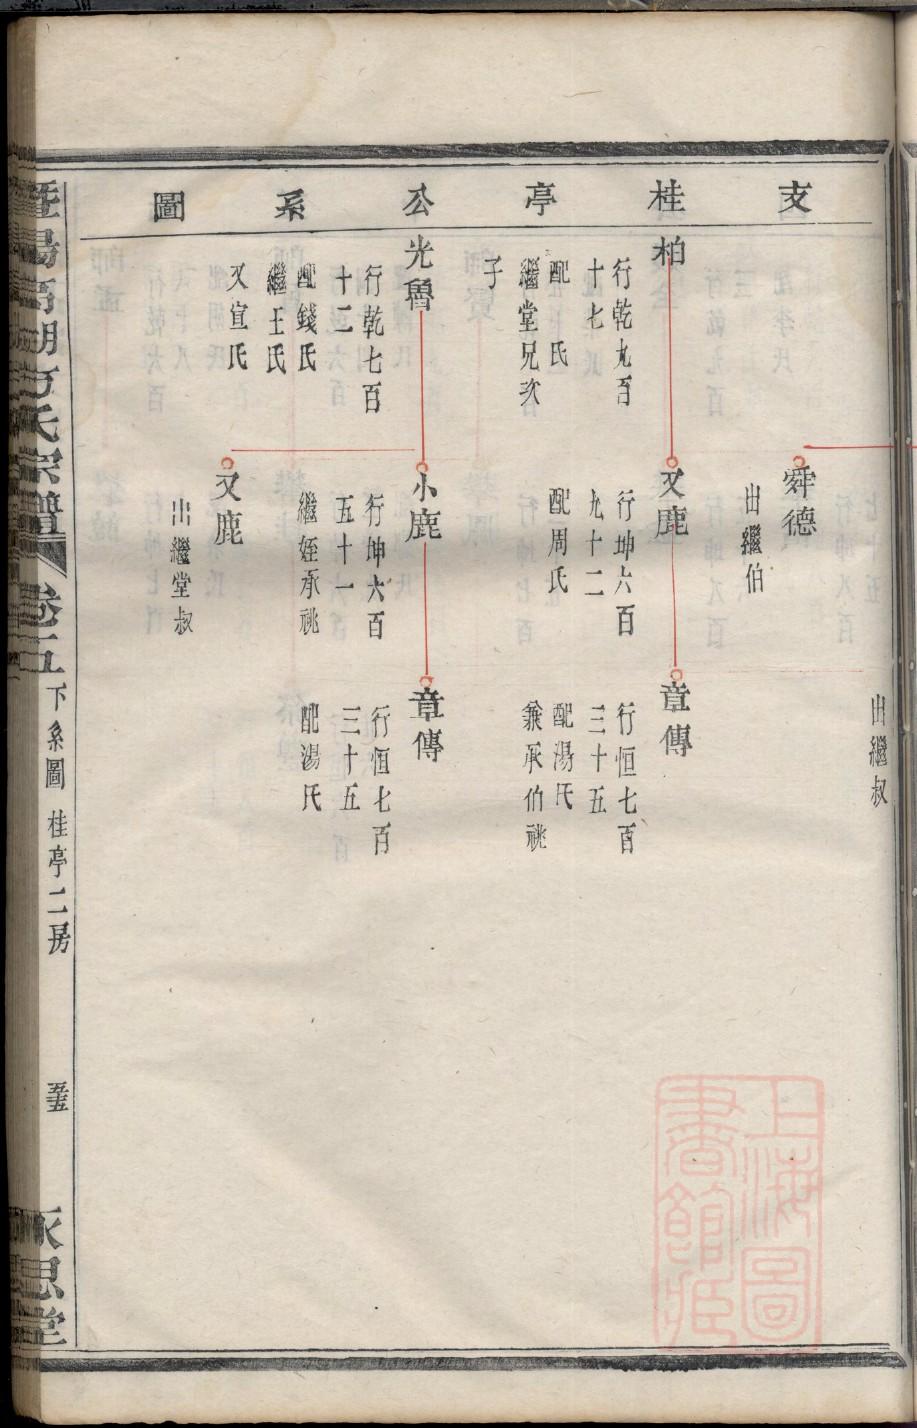 支桂亭公系圖
出繼叔
舜德
出繼伯
柏
行乾九百
十七
配　氏
繼堂兄次
子
又鹿
行坤六百
九十二
配周氏
章傳
行恒七百
三十五
配湯氏
兼承伯祧
光魯
行乾七百
十二
配錢氏
繼王氏
又宣氏
小鹿
行坤六百
五十一
繼姪承祧
章傳
行恒七百
三十五
配湯氏
又鹿
出繼堂叔
暨陽高湖方氏宗譜
卷五
下系圖
桂亭二房
永思堂
上海圖書館藏